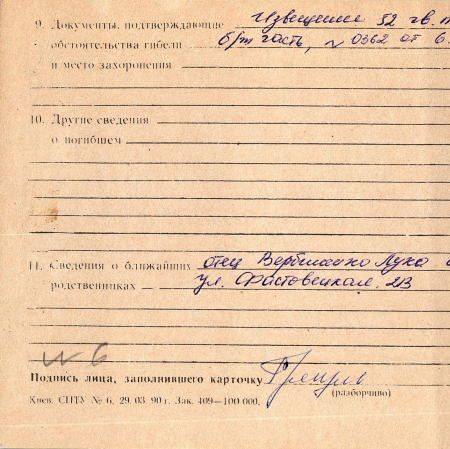 9. Документы, подтверждающие Извещение 52 гв.
обстоятельства гибели б/м часть, № 0362 от 6.
и место захоронения
10. Другие сведения
о погибшем
11. Сведения о ближайших отец Лука
родственниках ул. Фастовецкая, 213
№ 6
Подпись лица, заполнившего карточку
(разборчиво)
Киев. СПТУ № 6. 29. 03. 90 г. Зак. 409—100 000.